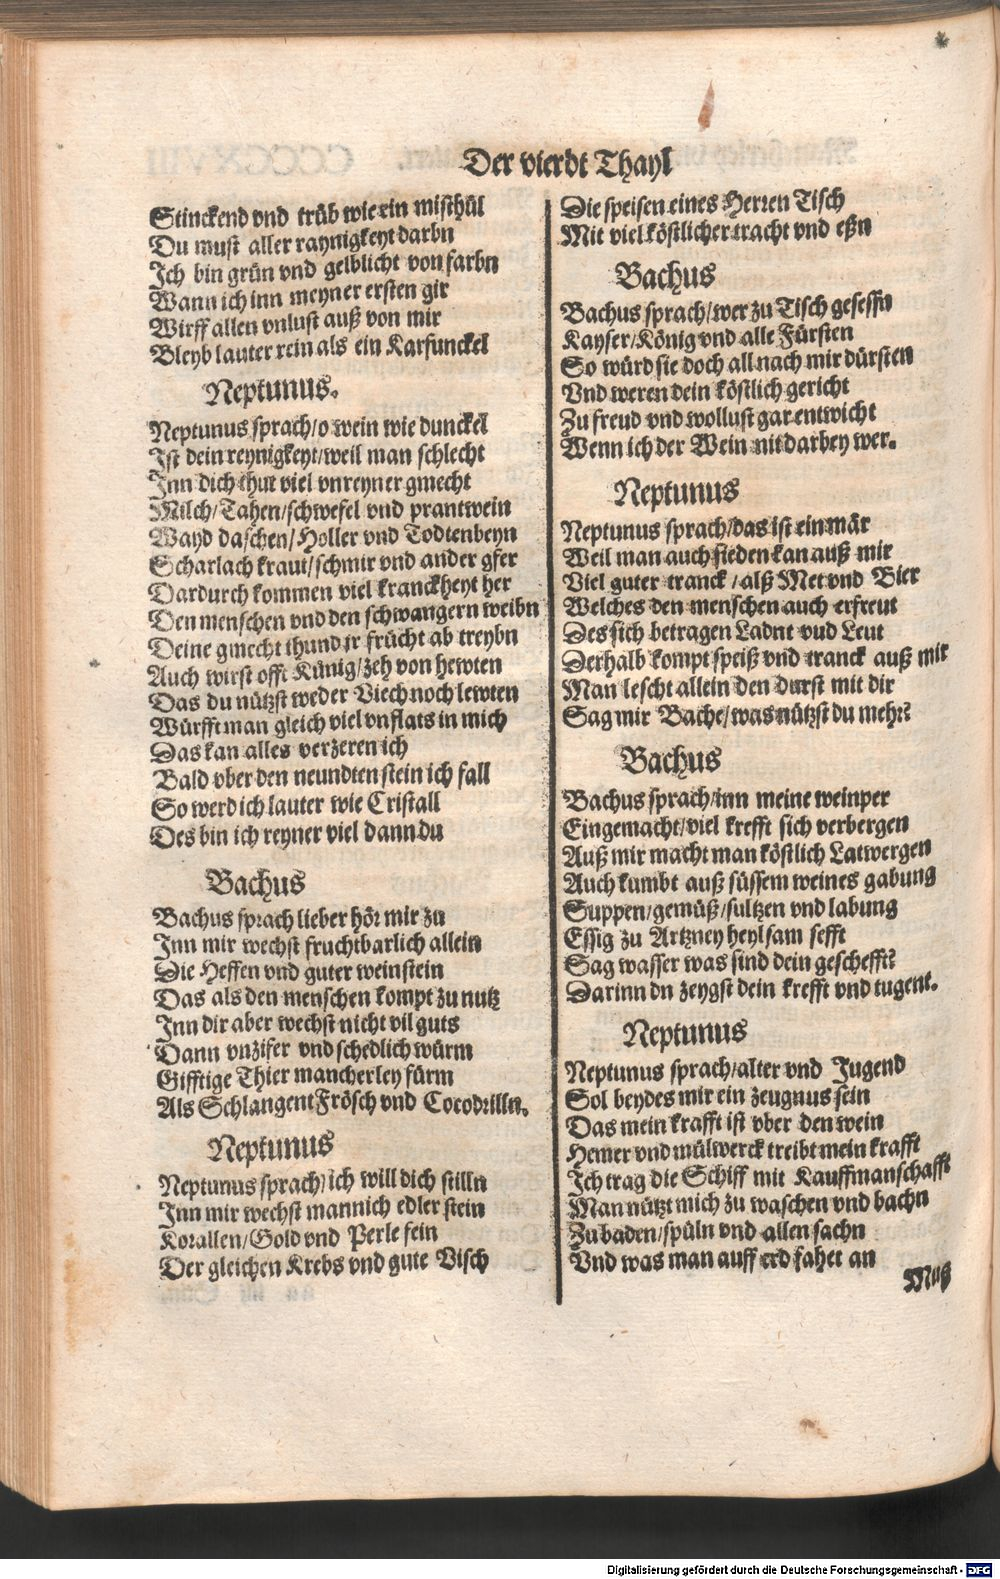 Der vierdt Thayl
Stinckend vnd trüb wie ein misthül
Du must aller raynigkeyt darbn
Ich bin grün vnd gelblicht von farbn
Wann ich inn meyner ersten gir
Wirff allen vnlust auß von mir
Bleyb lauter rein als ein Karfunckel
Neptunus.
Neptunus sprach/o wein wie dunckel
Ist dein reynigkeyt/weil man schlecht
Inn dich thut viel vnreyner gmecht
Milch/Tahen/schwefel vnd prantwein
Wayd daschen/Holler vnd Todtenbeyn
Scharlach kraut/schmir vnd ander gfer
Dardurch kommen viel kranckheyt her
Den menschen vnd den schwangern weibn
Deine gmecht thund jr frücht ab treybn
Auch wirst offt Künig/zeh von hewten
Das du nützst weder Viech noch lewten
Würfft man gleich viel vnflats in mich
Das kan alles verzeren ich
Bald vber den neundten stein ich fall
So werd ich lauter wie Cristall
Des bin ich reyner viel dann du
Bachus
Bachus sprach lieber hör mir zu
Inn mir wechst fruchtbarlich allein
Die Heffen vnd guter weinstein
Das als den menschen kompt zu nutz
Inn dir aber wechst nicht vil guts
Dann vnzifer vnd schedlich würm
Gifftige Thier mancherley fürm
Als Schlangent Frösch vnd Cocodrilln.
Neptunus
Neptunus sprach/ich will dich stilln
Inn mir wechst mannich edler stein
Korallen/Gold vnd Perle fein
Der gleichen Krebs vnd gute Visch
Die speisen eines Herren Tisch
Mit viel köstlicher tracht vnd eßn
Bachus
Bachus sprach/wer zu Tisch gesessn
Kayser/König vnd alle Fürsten
So würd sie doch all nach mir dürsten
Vnd weren dein köstlich gericht
Zu freud vnd wollust gar entwicht
Wenn ich der Wein nit darbey wer.
Neptunus
Neptunus sprach/das ist ein mär
Weil man auch sieden kan auß mir
Viel guter tranck/alß Met vnd Bier
Welches den menschen auch erfreut
Des sich betragen Ladnt vud Leut
Derhalb kompt speiß vnd tranck auß mir
Man lescht allein den durst mit dir
Sag mir Bache/was nützst du mehr?
Bachus
Bachus sprach/inn meine weinper
Eingemacht/viel krefft sich verbergen
Auß mir macht man köstlich Latwergen
Auch kumbt auß süssem weines gabung
Suppen/gemüß/sultzen vnd labung
Essig zu Artzney heylsam sefft
Sag wasser was sind dein geschefft?
Darinn dn zeygst dein krefft vnd tugent.
Neptunus
Neptunus sprach/alter vnd Jugend
Sol beydes mir ein zeugnus sein
Das mein krafft ist vber den wein
Hemer vnd mülwerck treibt mein krafft
Ich trag die Schiff mit Kauffmanschafft
Man nützt mich zu waschen vnd bachn
Zu baden/spüln vnd allen sachn
Vnd was man auff erd fahet an
Muß
Digitalisierung gefördert durch die Deutsche Forschungsgemeinschaft - DFG